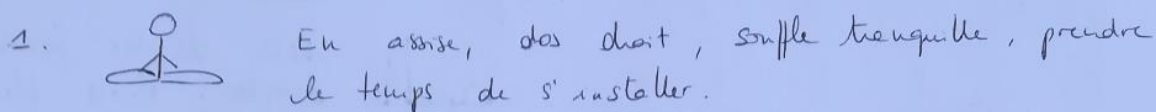 1. En assise, dos droit, souffle tranquille, prendre
le temps de s'installer.